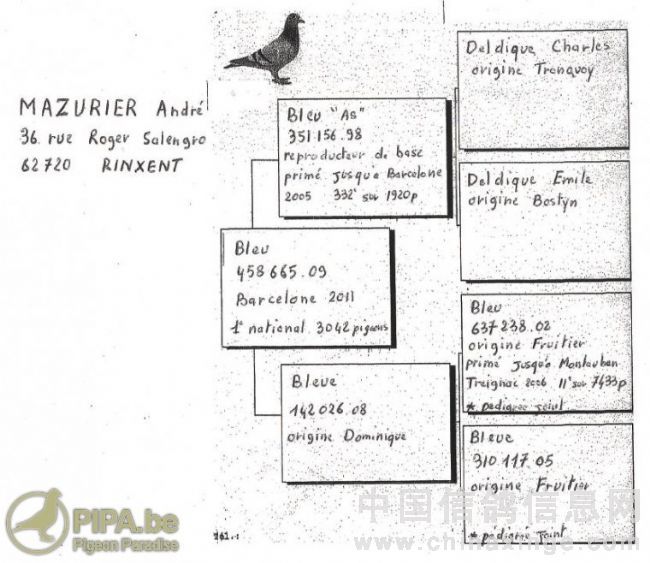 MAZURIER André
36. rue Roger Salengro
62720 RINXENT
Bleu "As"
351 156.98
reproducteur de base
primé jusqu'a Barcelone
2005 332è sur 1920p
Bleu
458 665.09
Barcelone 2011
1e national 3042 pigeons
Bleue
142 026.08
origine Dominique
Deldique Charles
origine Tronquoy
Deldique Emile
origine Bostyn
Bleu
637 238.02
origine Fruitier
primé jusqu'a Montauban
Treignac 2006 11è sur 7433p
* pedigree joint
Bleue
310 117 05
origine Fruitier
* pedigré joint
PIPA.be
Pigeon Paradise
中国信鸽信息网
www.chinaxinge.com